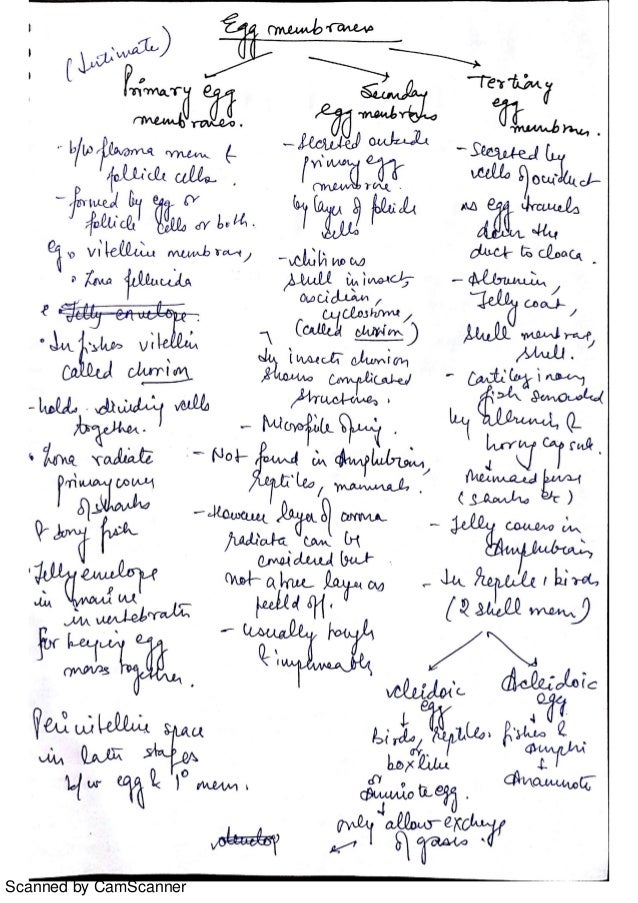 Egg membranes
(Intimate)
Primary egg
membranes.
- b/w plasma mem &
follicle cells.
- formed by egg or
follicle cells or both.
eg, vitelline membrane,
• Zona pellucida
• Jelly envelope.
• In fishes vitellin
called chorion
- holds dividing cells
together.
• Zona radiata
primary cover
of sharks
& bony fish
• Jelly envelope
in marine
invertebrates
for keeping egg
mass together.
Perivitelline space
in later stages
b/w egg & 1° mem.
Secondary
egg membranes
- Secreted outside
primary egg
membrane.
by layer of follicle
cells
- chitinous
shell in insect,
ascidian,
cyclostome,
(called chorion)
In insects chorion
shows complicated
structures.
- Micropile opening.
- Not found in Amphibian,
reptiles, mammals.
- However layer of corona
radiata can be
considered but
not a true layer as
peeled off.
- usually tough
& impermeable
Tertiary
egg
membranes.
- Secreted by
cells of oviduct
as egg travels
down the
duct to cloaca.
- Albumin,
Jelly coat,
shell membrane,
shell.
- Cartilaginous
fish surrounded
by albumin &
horny capsule.
Mermaid purse
(sharks etc)
- Jelly covers in
Amphibian
- In reptile, birds
(2 shell mem)
cleidoic
egg
Birds, reptiles.
or
box like
or
Amniote egg.
only allow exchange
of gases.
Acleidoic
egg
fishes &
amphi
Anamniote
develop
Scanned by CamScanner